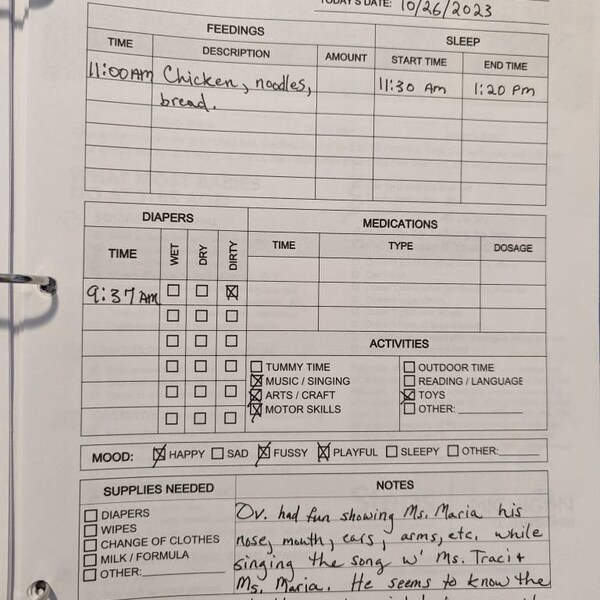 TODAY'S DATE: 10/26/2023
FEEDINGS SLEEP
TIME DESCRIPTION AMOUNT START TIME END TIME
11:00AM Chicken, noodles, 11:30 Am 1:20 Pm
bread.
DIAPERS MEDICATIONS
TIME WET DRY DIRTY TIME TYPE DOSAGE
9:37AM
ACTIVITIES
TUMMY TIME OUTDOOR TIME
MUSIC / SINGING READING / LANGUAGE
ARTS / CRAFT TOYS
MOTOR SKILLS OTHER:
MOOD: HAPPY SAD FUSSY PLAYFUL SLEEPY OTHER:
SUPPLIES NEEDED
DIAPERS
WIPES
CHANGE OF CLOTHES
MILK / FORMULA
OTHER:
NOTES
Ov. had fun showing Ms. Maria his
nose, mouth, ears, arms, etc. while
singing the song w' Ms. Traci +
Ms. Maria. He seems to know the